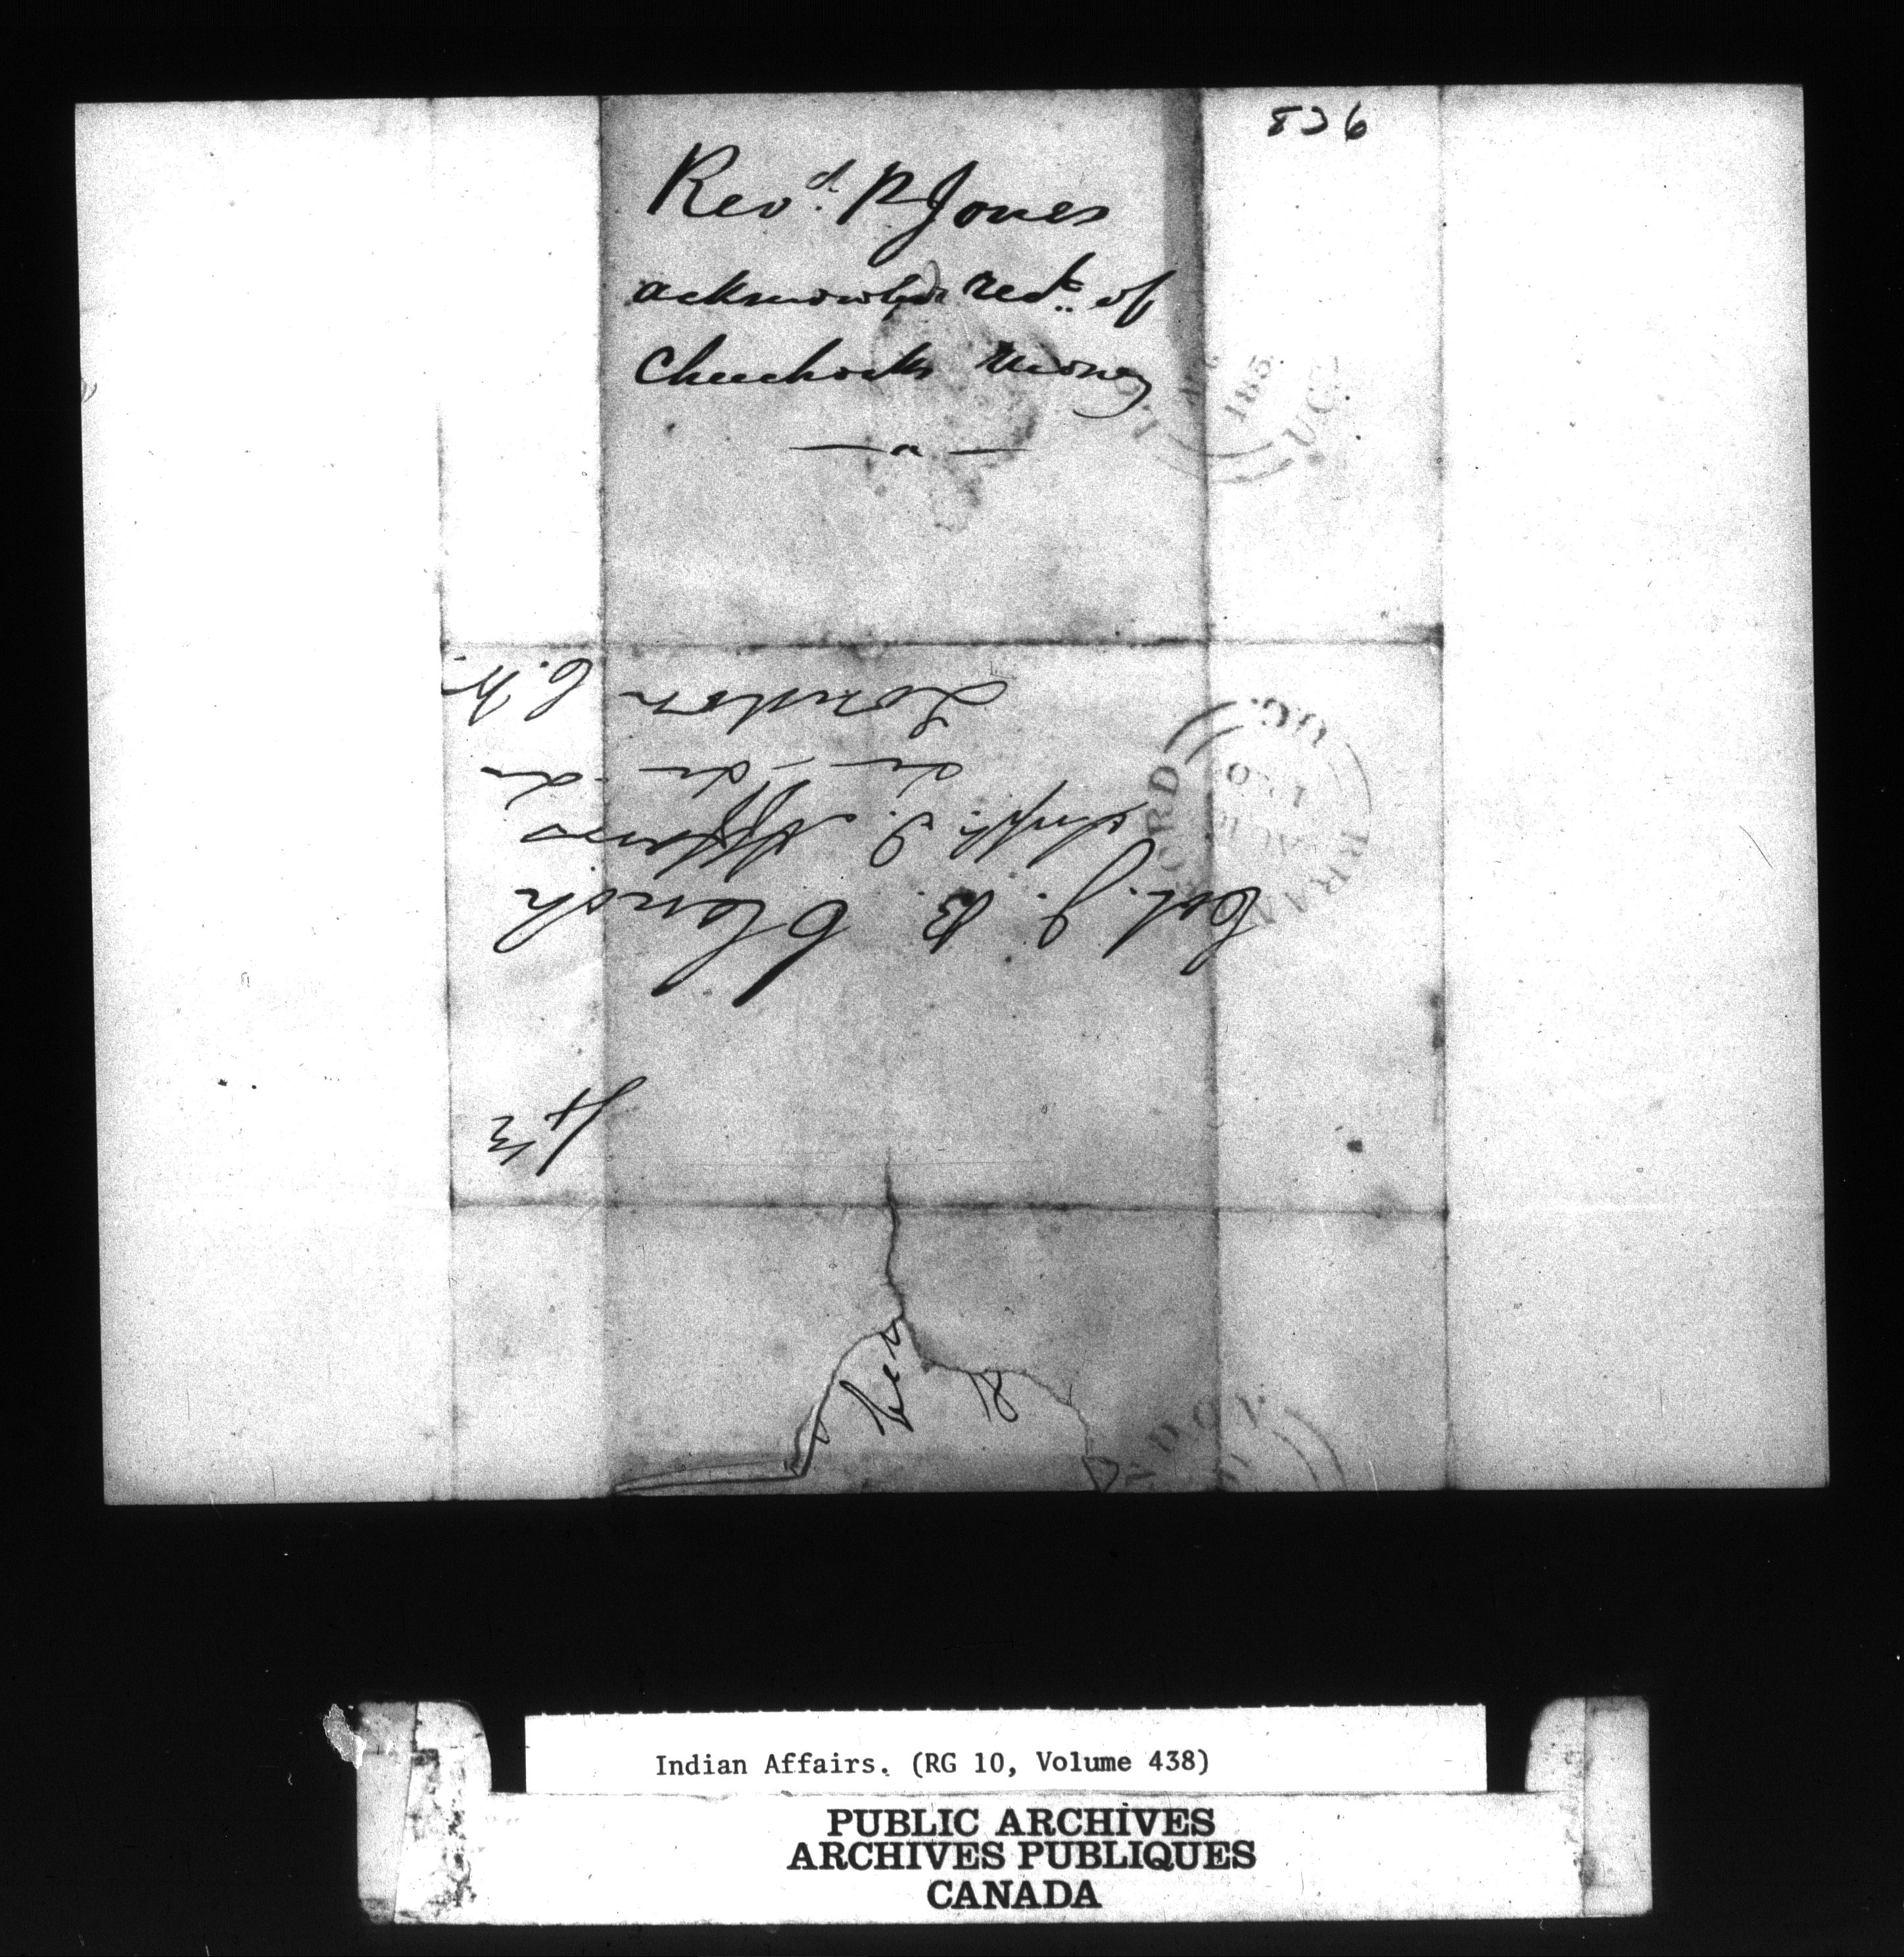 836
Revd. P Jones
acknowledge rect. of
Cheechocks Money
Col. J. B. Clench
Supt. I. Affairs
do - do - do
London C. W.
4½
BRANTFORD
U.C.
185
U.C.
Indian Affairs. (RG 10, Volume 438)
PUBLIC ARCHIVES
ARCHIVES PUBLIQUES
CANADA